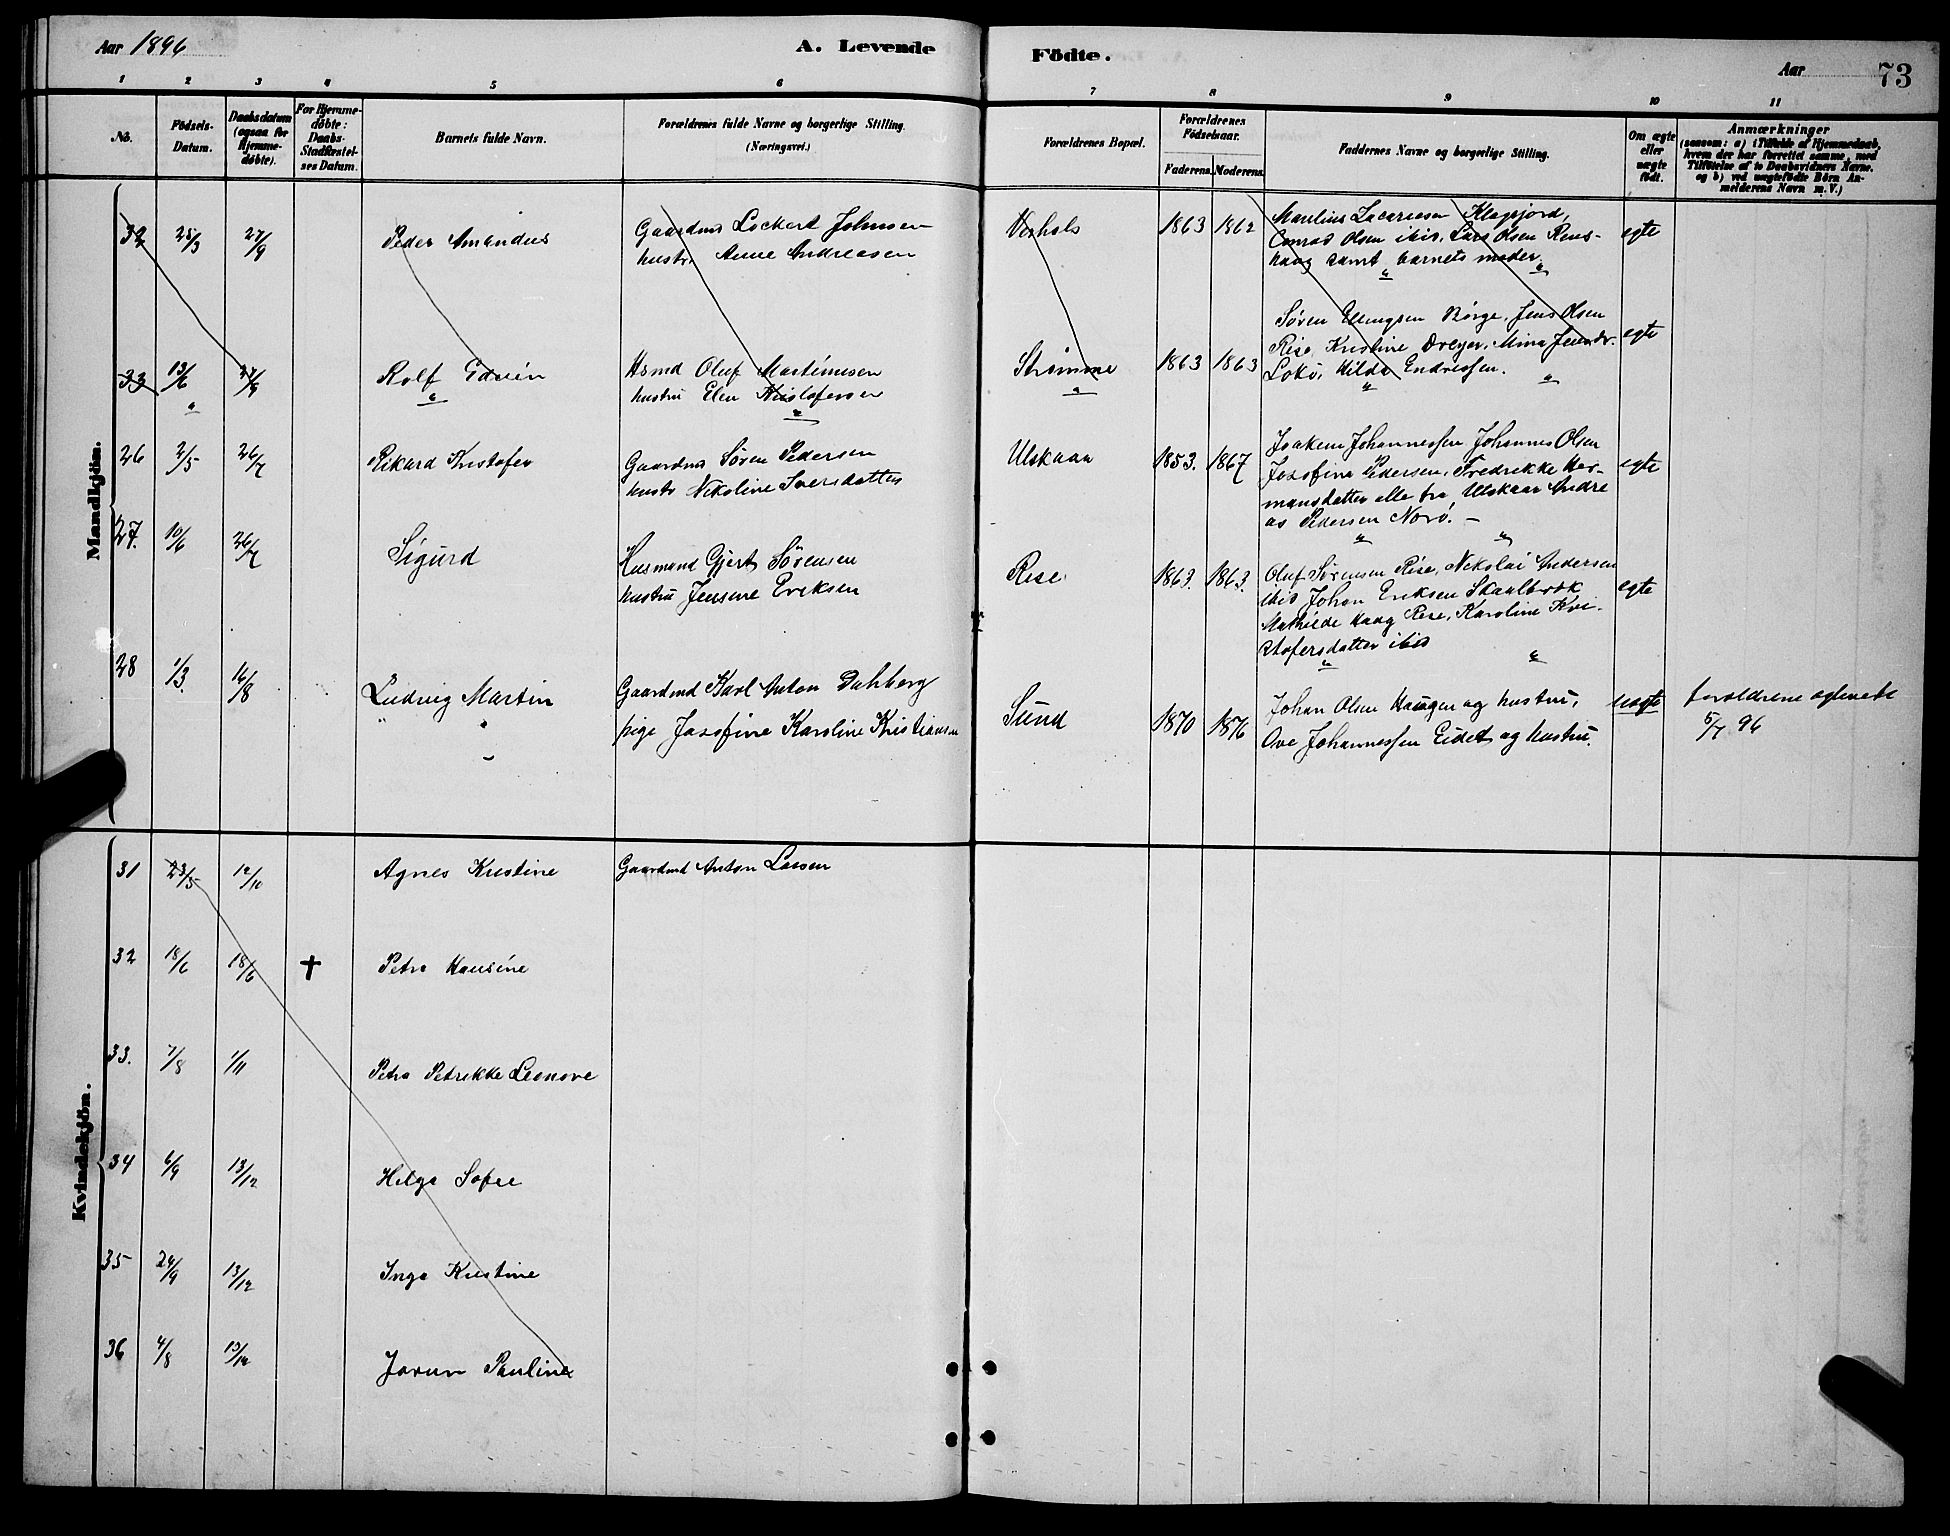 Aar 1896
A. Levende
Födte.
Aar
73
1 2 3 4 5 6 7 8 9 10 11
No.
Födsels-
Datum.
Daabsdatum
(ogsaa for
Hjemme-
döbte).
For Hjemme-
döbte:
Daabs-
Stadfæstel-
ses Datum.
Barnets fulde Navn.
Forældrenes fulde Navne og borgerlige Stilling.
(Næringsvei.)
Forældrenes Bopæl.
Forældrenes
Födselsaar.
Faderens. Moderens.
Faddernes Navne og borgerlige Stilling.
Om ægte
eller
uægte
födt.
Anmærkninger
(saasom: a) i Tilfælde af Hjemmedaab,
hvem der har forrettet samme, med
Tilföielse af to Daabsvidners Navne,
og b) ved uægtefödte Börn An-
melderens Navn m. V.)
Mandkjön.
32 25/3 27/9 Peder Amandus
Gaardmd Lockert Johnsen
hustr. Anne Andreasen
1863 1862
Conrad Olsen ibid. Lars Olsen Rens-
haug samt barnets moder
egte
33 13/6 27/9 Rolf Edvin
Hsmd Oluf Martinusen
hustru Elen Kristofersen
Strømme 1863 1863
Søren Ellingsen Børge, Jens Olsen
Rise, Kristine Dreyer, Mina Jensdr.
Lokø, Hilda Endresen.
egte
26 2/5 26/7 Rikard Kristofer
Gaardmd Søren Pedersen
hustr Nikoline Iversdatter
Utskaar 1853. 1867
Joakim Johannessen Johannes Olsen
Josefine Pedersen, Fredrikke Her-
mansdatter alle fra Utskaar Andre
as Pedersen Norø. –
egte
27. 10/6 26/7 Sigurd
Husmand Gjert Sørensen
hustru Jensine Eriksen
Rise 1863. 1863.
Oluf Sørensen Rise, Nikolai Andersen
ibid Johan Eriksen Skaalbrok
Mathilde Haug Rise, Karoline Kri-
stofersdatter ibid
egte
28 1/3. 16/8 Ludvig Martin
Gaardmd Karl Anton Dahberg
pige Josefine Karoline Kristiansen
Sund 1870 1876
Johan Olsen Haugen og hustru,
Ove Johannessen Eidet og hustru.
uegte
foreldrene egteviet
5/7 96
Kvindekjön.
31 23/5 12/10 Agnes Kristine
Gaardmd Anton Larsen
32 18/6 18/6 † Petra Hansine
33. 7/8 1/11 Petra Petrikke Leonore
34 6/9 13/12 Helga Sofie
35 24/9 13/12 Inga Kristine
36 4/8 13/12 Jorun Pauline